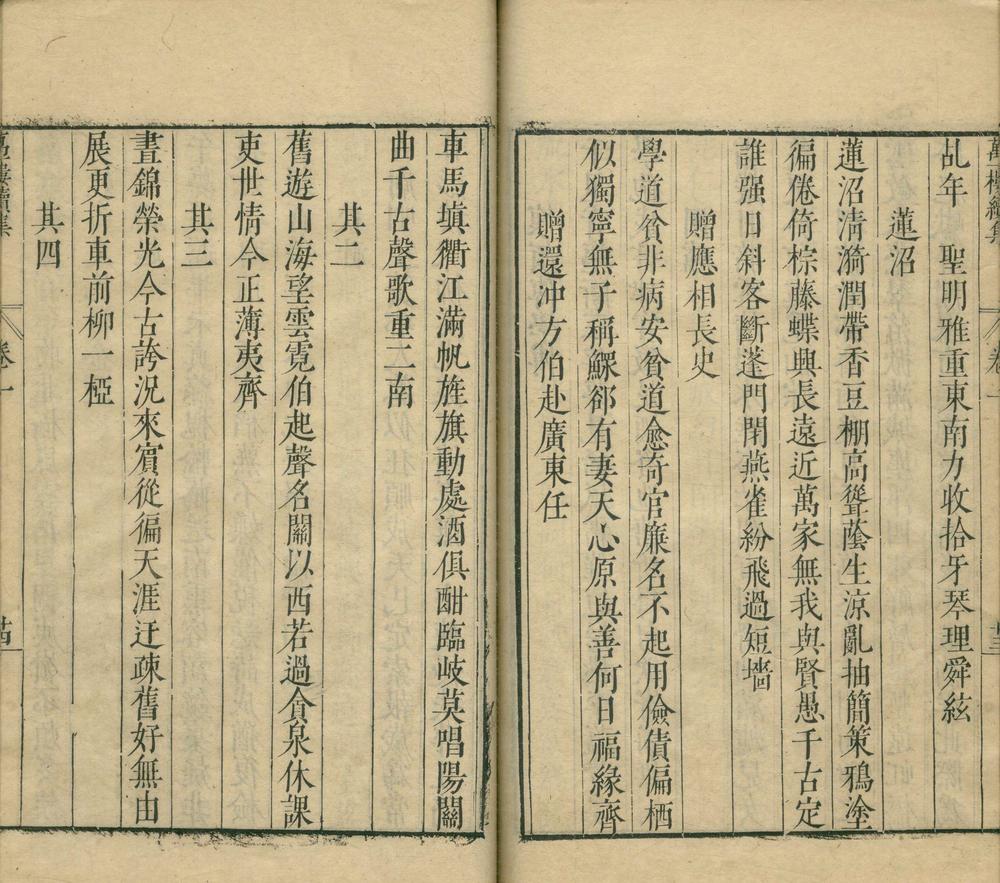 乩年　聖明雅重東南力收拾牙琴理舜絃
蓮沼
蓮沼淸漪潤帶香豆棚高聳蔭生涼亂抽簡策鴉塗
徧倦倚棕藤蝶興長遠近萬家無我與賢愚千古定
誰强日斜客斷蓬門閉燕雀紛飛過短墻
贈應相長史
學道貧非病安貧道愈奇官廉名不起用儉債偏栖
似獨寧無子稱鰥郤有妻天心原與善何日福緣齊
贈還冲方伯赴廣東任
車馬塡衢江滿帆旌旗動處酒俱酣臨岐莫唱陽關
曲千古聲歌重二南
其二
舊遊山海望雲霓伯起聲名關以西若過貪泉休課
吏世情今正薄夷齊
其三
晝錦榮光今古誇況來賔從徧天涯迂疎舊好無由
展更折車前柳一椏
其四
卷一